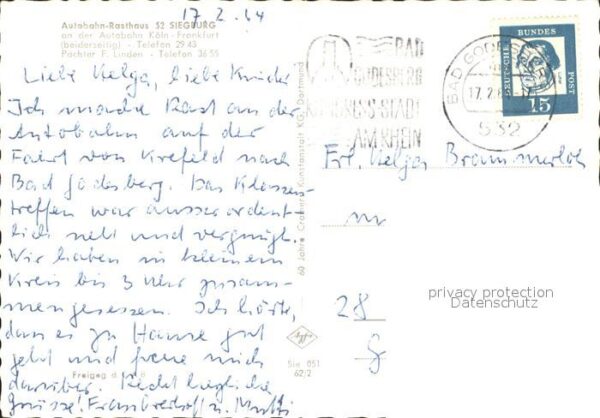 17. 2. 64
Autobahn-Rasthaus 52 SIEGBURG
an der Autobahn Köln-Frankfurt
(beiderseitig) - Telefon 29 43
Pächter F. Linden - Telefon 36 55
Liebe Helga, liebe Kinder
Ich mache Rast an der
Autobahn auf der
Fahrt von Krefeld nach
Bad Godesberg. Das Klassen-
treffen war ausserordent-
lich nett und vergnügt.
Wir haben in kleinem
Kreis bis 3 Uhr zusam-
mengesessen. Ich hörte,
dass es zu Hause gut
geht und freue mich
darüber. Recht herzliche
Grüsse!
Freigeg. d.
60 Jahre Cramers Kunstanstalt KG, Dortmund
BAD
GODESBERG
KONGRESS-STADT
AM RHEIN
BAD GODESBERG
17.2.6
532
DEUTSCHE BUNDESPOST
15
Frl. Helga
in
28
Agfa
Sie 051
62/2
privacy protection
Datenschutz